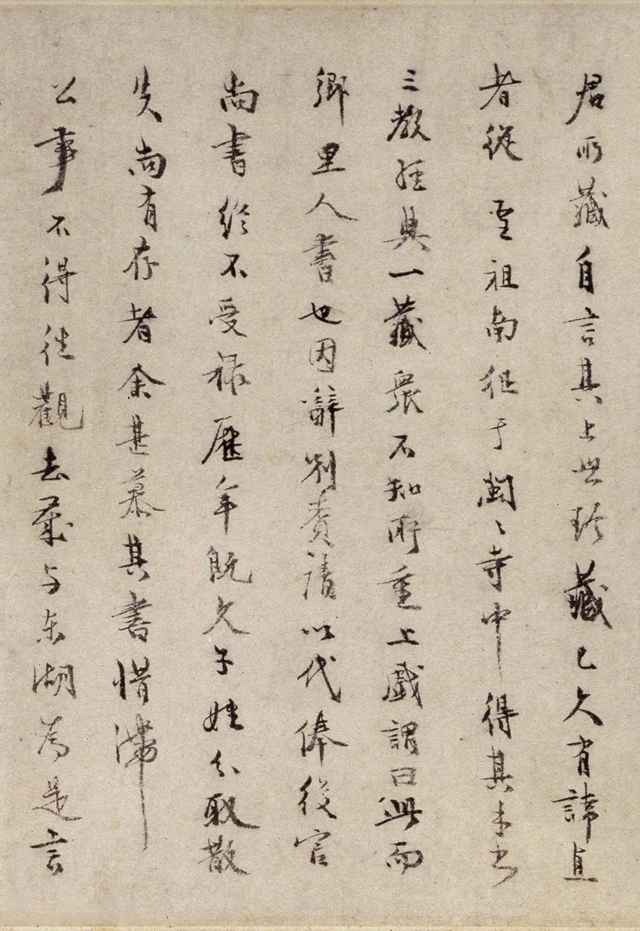 君所藏自言其上世珍藏已久有諱直
者從聖祖南征于閩〻寺中得其手書
三教經典一藏衆不知所重上戲謂曰此而
鄉里人書也因辭制賚請以代俸後官
尚書終不受祿歷年既久子姓分取散
失尚有存者余甚慕其書惜滯
公事不得徃觀去歲与東湖為是言